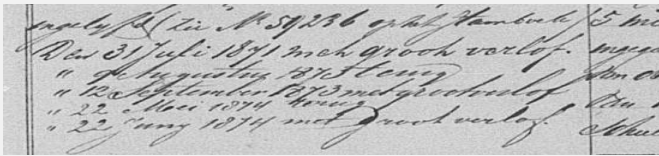 ingelyfd (zie No 59236 op het Stamboek) 5 mi
Den 31 Juli 1871 met groot verlof. ingega
" Augustus 1873 terug den
" 12 September 1873 met groot verlof
" 22 Mei 1874 terug van
" 22 Juny 1874 met groot verlof.